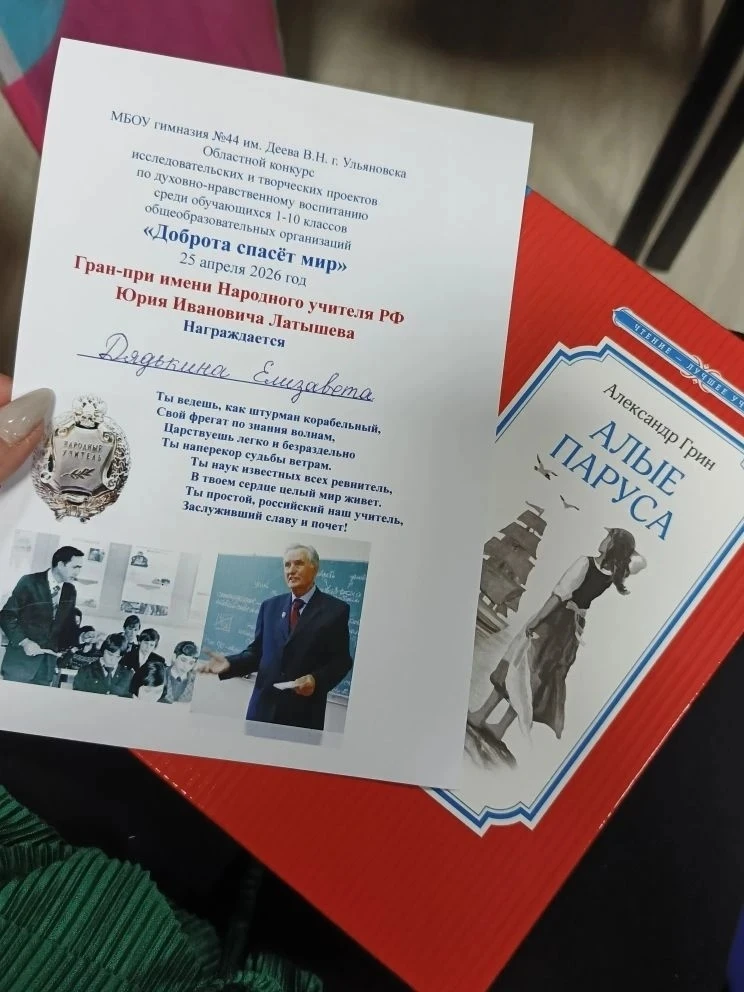 МБОУ гимназия №44 им. Деева В.Н. г. Ульяновска
Областной конкурс
исследовательских и творческих проектов
по духовно-нравственному воспитанию
среди обучающихся 1-10 классов
общеобразовательных организаций
«Доброта спасёт мир»
25 апреля 2026 год
Гран-при имени Народного учителя РФ
Юрия Ивановича Латышева
Награждается
Дядькина Елизавета
Ты ведешь, как штурман корабельный,
Свой фрегат по знания волнам,
Царствуешь легко и безраздельно
Ты наперекор судьбы ветрам.
Ты наук известных всех ревнитель,
В твоем сердце целый мир живет.
Ты простой, российский наш учитель,
Заслуживший славу и почет!
НАРОДНЫЙ
УЧИТЕЛЬ
ЧТЕНИЕ – ЛУЧШЕЕ
Александр Грин
АЛЫЕ
ПАРУСА